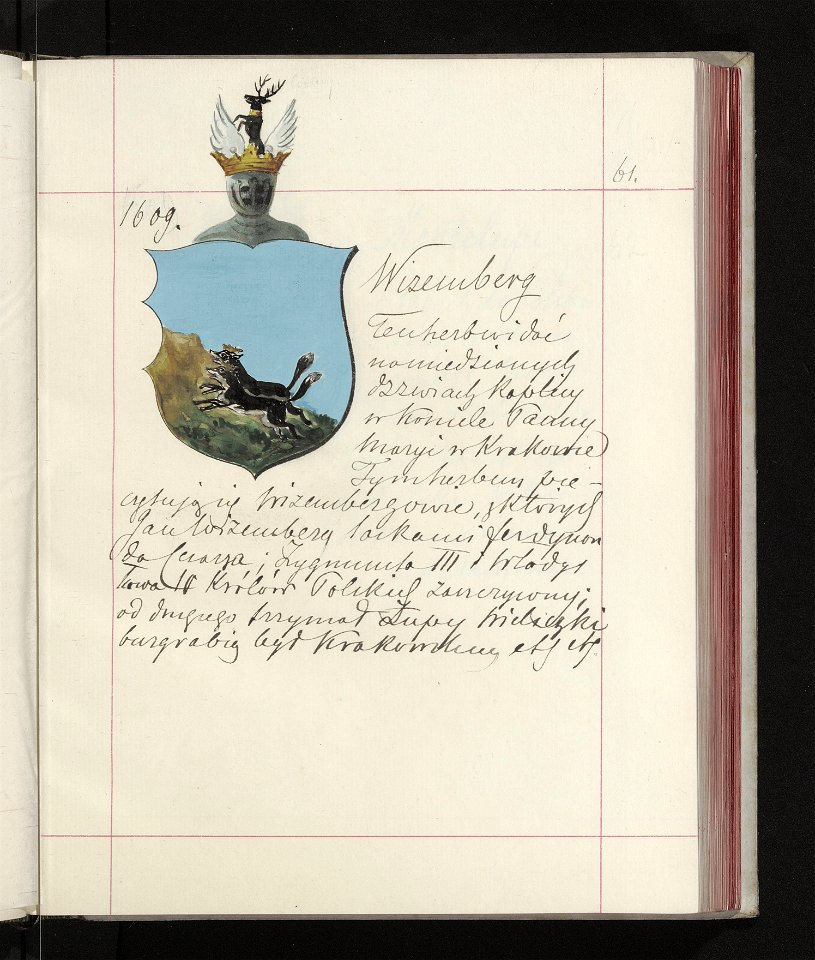 61.
1609.
Wizemberg
Ten herb widać
na miedzianych
drzwiach kaplicy
w kościele Panny
Maryi w Krakowie
Tym herbem pie-
czętują się Wizembergowie, z których
Jan Wizemberg łaskami Ferdynan
da Cesarza, Zygmunta III i Włady
sława IV Królów Polskich zaszczycony,
od drugiego trzymał Żupy Wieliczki
burgrabią był Krakowskim etc etc.